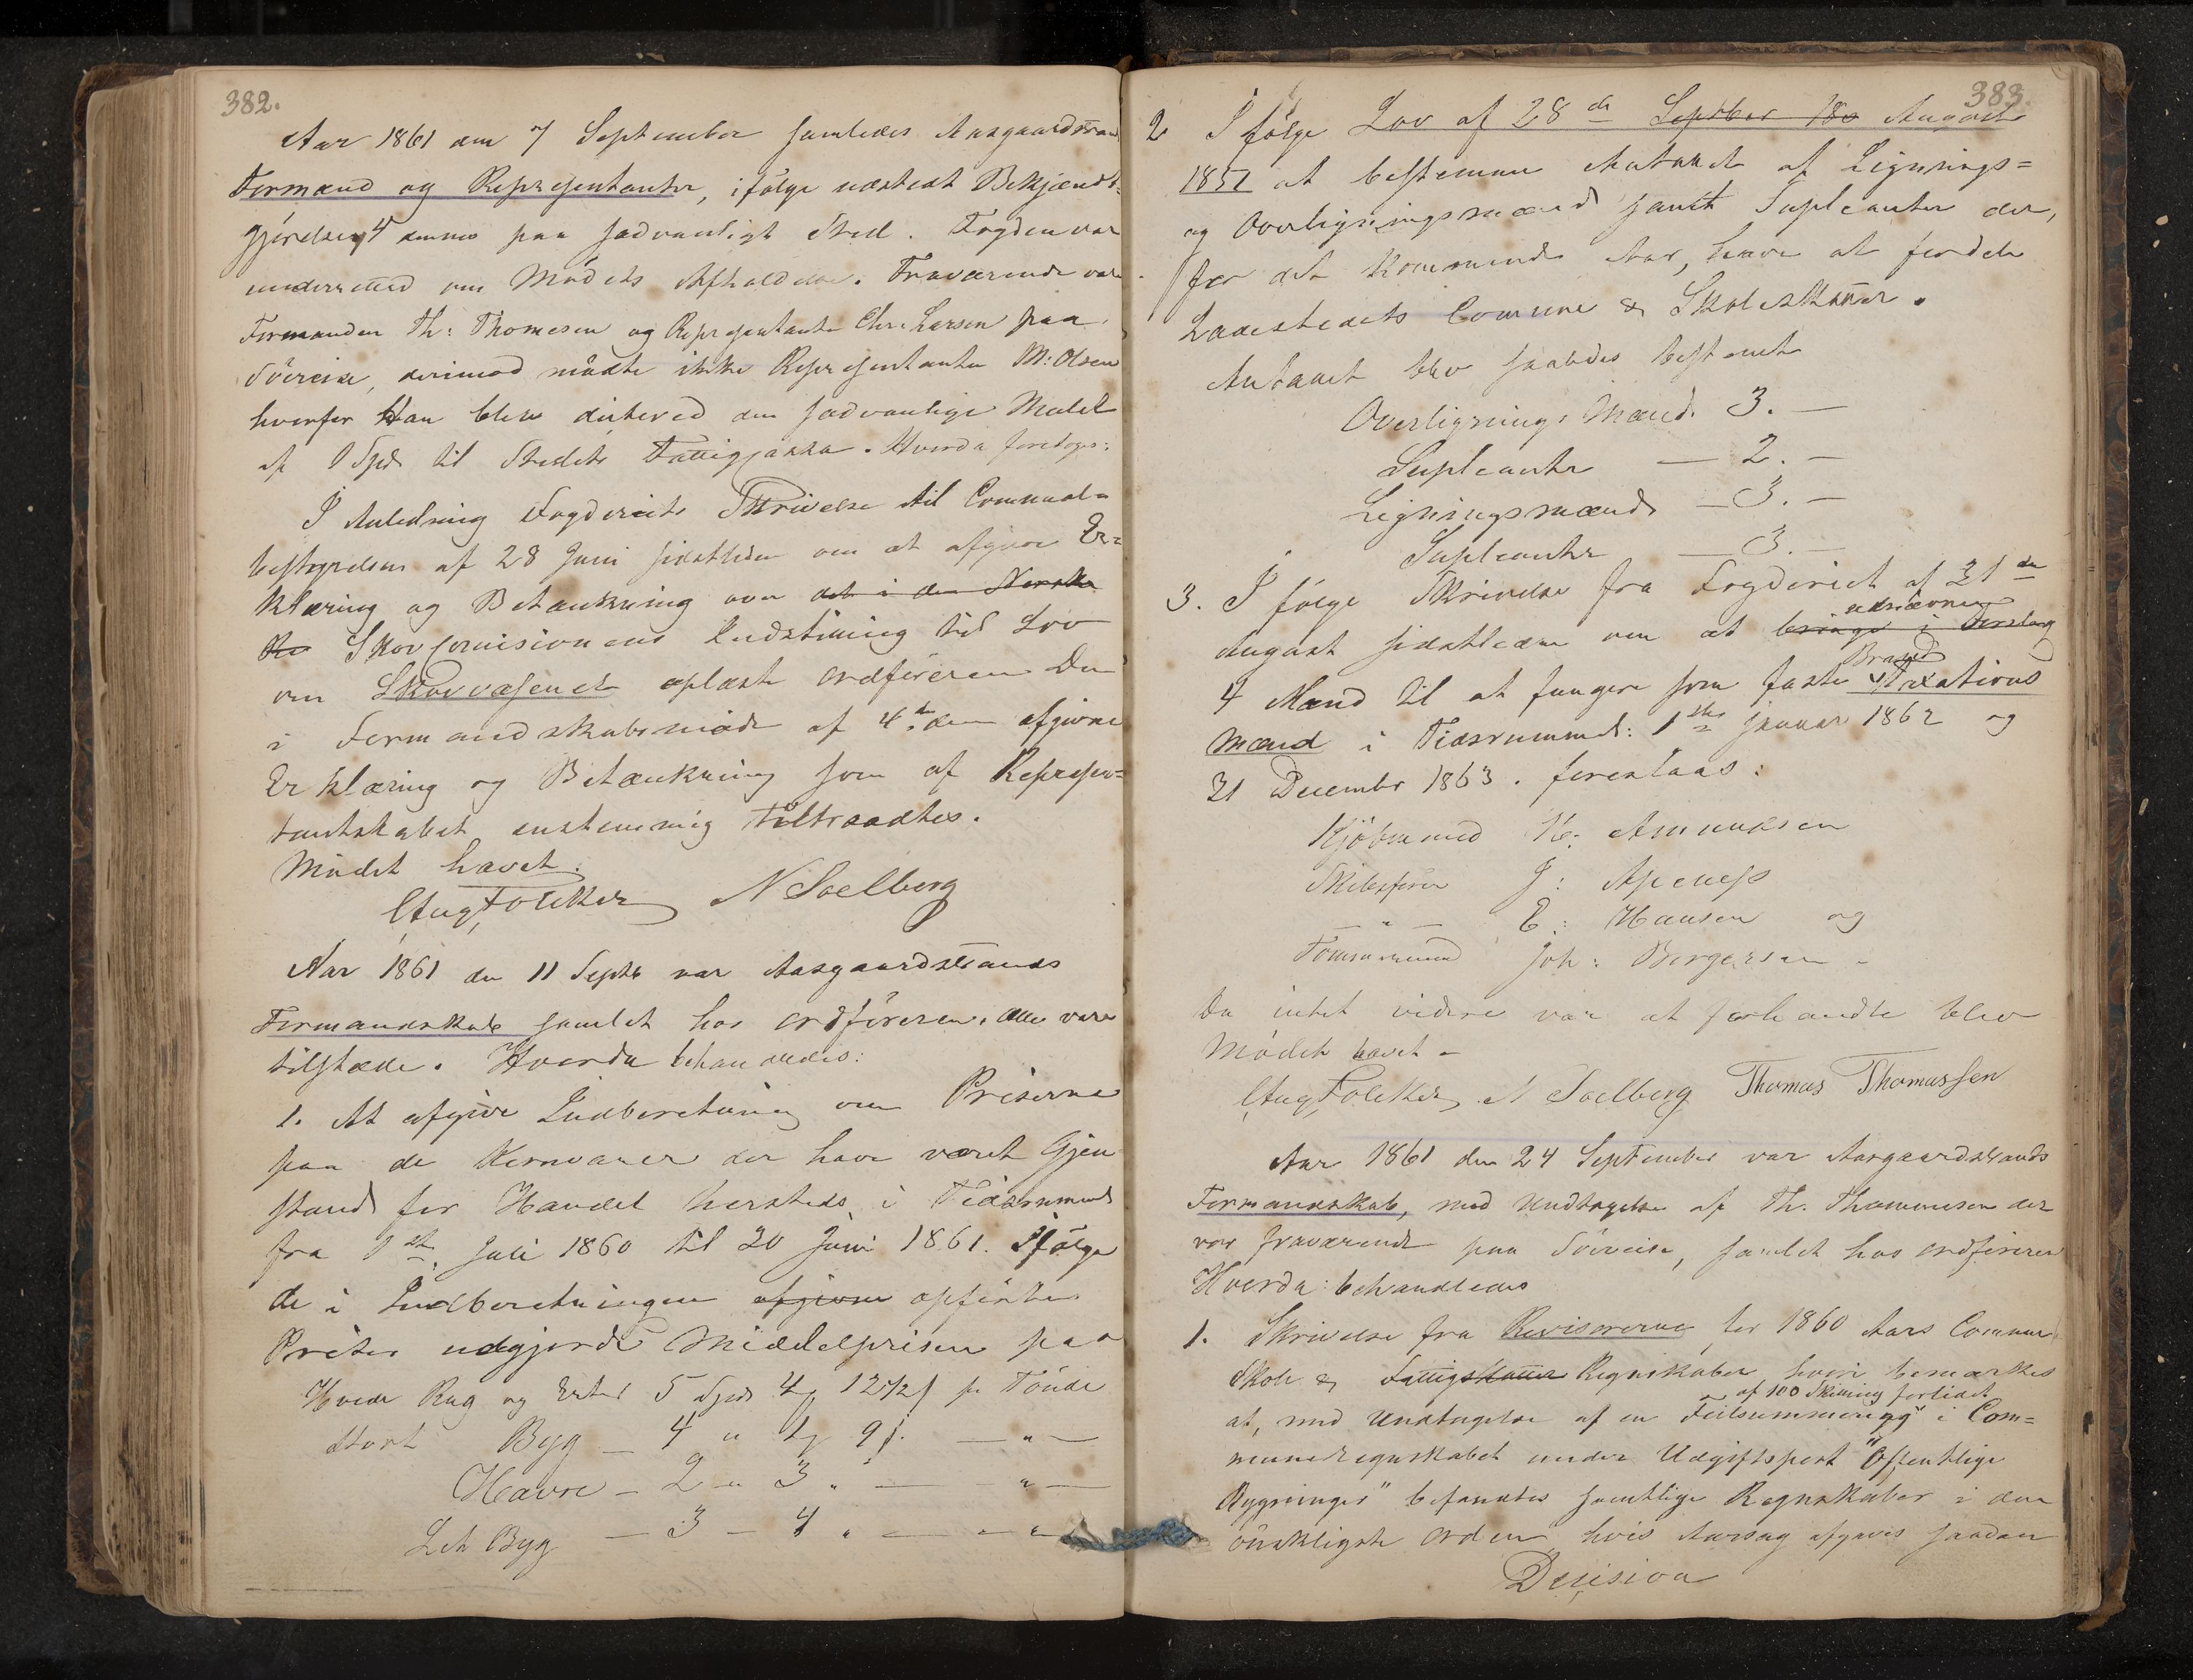 382.
Aar 1861 den 7 September samledes Aasgaardstran
Formænd og Repræsentanter, ifölge udstedt Bekjendt=
gjörelse af dennes paa sædvanligt Sted. Fogden var
underretted om Mödets Afholdelse. Fraværende var
Formanden Th: Thomesen og Repræsentante Chr. Larsen paa
Söereise, derimod mödte ikke Repræsentanten M: Olsen
hvorfor Han blev dicteret den sædvanlige Mulct
af 1 Spd. til Stedets Fattigkassa. Hvorda foretoges:
I Anledning Fogderiets Skrivelse til Communal=
bestyrelsen af 28 Juni sidstleden om at afgive Er=
klæring og Betænkning over det i den Norske
Ko Skovcomisionens Indstilling til Lov
om Skovvæsenet oplæste Ordföreren Den
i Formandskabsmöde af 4de dennes afgivne
Erklæring og Betænkning som af Repræsen=
tantskabet enstemmig tiltraadtes.
Mödet hævet.
Aug. Foleker N Soelberg
Aar 1861 den 11 Septb var Aasgaardstrands
Formandskab samlet hos Ordföreren. Alle vare
tilstæde. Hvorda behandledes:
1. At afgive Indberetning om Priserne
paa de Kornvarer der have været Gjen
stand for Handel hersteds i Tidsrummet
fra 1ste Juli 1860 til 30 Juni 1861. Ifölge
de i Indberetningen afgivne opförte
Priser udgjorde Middelprisen paa
Hvede Rug og Erter 5 Spd 4 12 1/2 s pr Tönde
Stort Byg — 4 " 4 9 s. — " —
Havre — 2 " 3 " — " —
Let Byg — 3 — 4 " — " —
383.
2 I fölge Lov af 28de Septber 180 August
1857 at bestemme Antallet af Lignings=
og Overligningsmænd samt Supleanter der,
for det kommende Aar, have at fordele
Ladestedets Comune & Skoleskatter.
Antallet blev saaledes bestemt
Overlignings Mænd 3. —
Supleanter — 2. —
Ligningsmænd — 3. —
Supleanter — 3. —
3. I fölge Skrivelse fra Fogderiet af 31de
August sidstleden om at bringe i Forslag
udnævne
4 Mænd til at fungere som faste Taxations
Brand
mænd i Tidsrummet: 1ste Januar 1862 og
31 December 1863. foreslaas:
Kjöbmand K: Amundsen
Skibsförer J: Apeness
— " — E: Hansen og
Tömmermand Joh: Borgersen –
Da intet videre var at forhandle blev
Mödet hævet –
Aug. Foleker N Soelberg Thomas Thomassen
Aar 1861 den 24 September var Aasgaardstrands
Formandskab, med Undtagelse af Th. Thommesen der
var fraværende paa Söereise, samlet hos Ordföreren
Hvorda: behandledes
1. Skrivelse fra Revisorerne for 1860 Aars Commune
Skole & Fattigskatter Regnskaber hvori bemærkes
at, med Undtagelse af en Feilsummering i Com=
af 100 Skilling forlidet
muneregnskabet under Udgiftspost "Offentlige
Bygninger" befandtes samtlige Regnskaber i den
önskligste Orden hvis Aarsag afgaves saadan
Decision